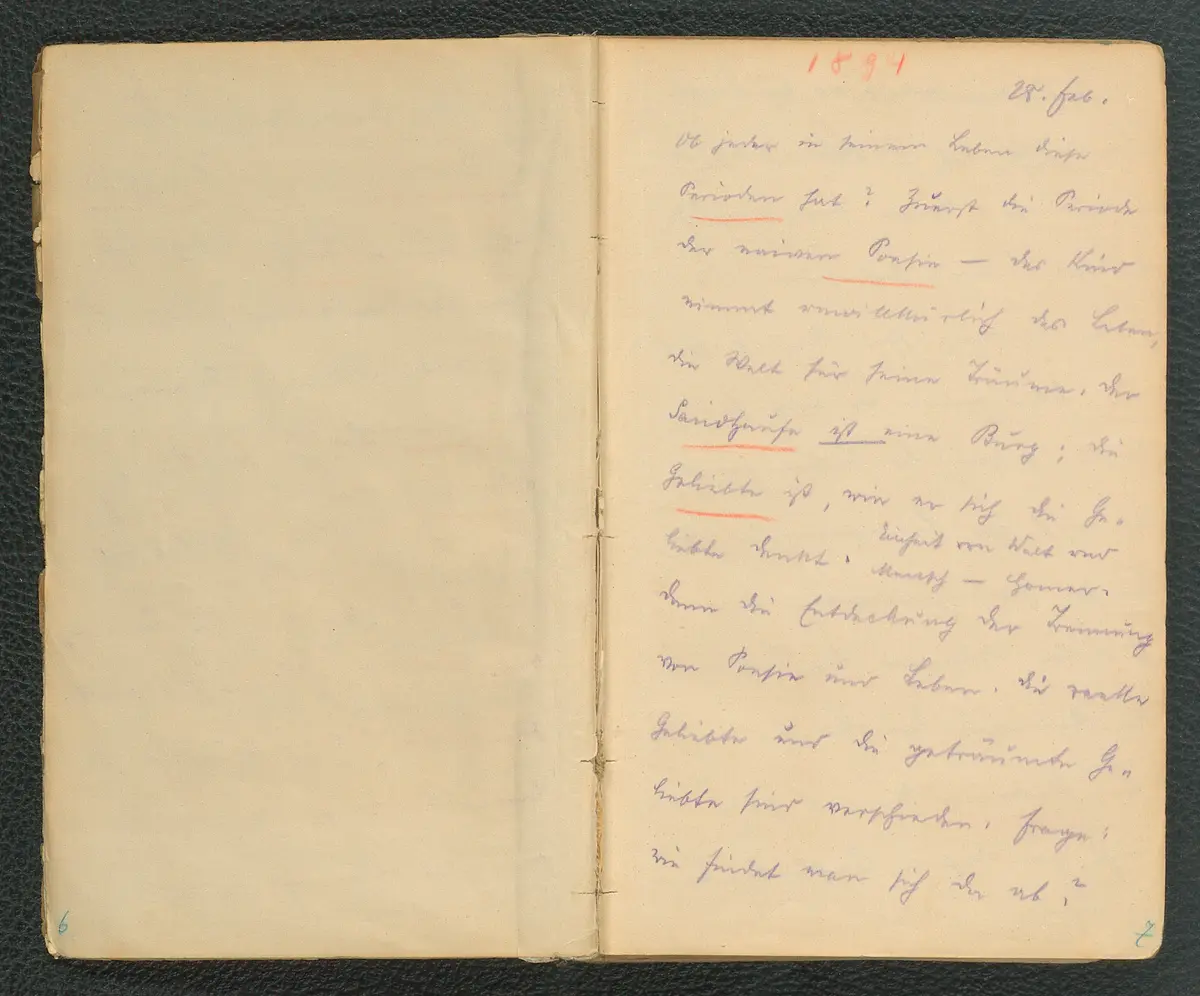 1894
28. Feb.
Ob jeder in seinem Leben diese
Perioden hat? Zuerst die Periode
der naiven Poesie — das Kind
nimmt unwillkürlich das Leben,
die Welt für seine Träume. Der
ist eine Burg; die
Geliebte ist, wie er sich die Ge-
liebte denkt. Einheit von Welt und
Mensch — Homer.
Dann die Entdeckung der Trennung
von Poesie und Leben. Die reelle
Geliebte und die geträumte Ge-
liebte sind verschieden. Frage:
wie findet man sich da ab?
6
7